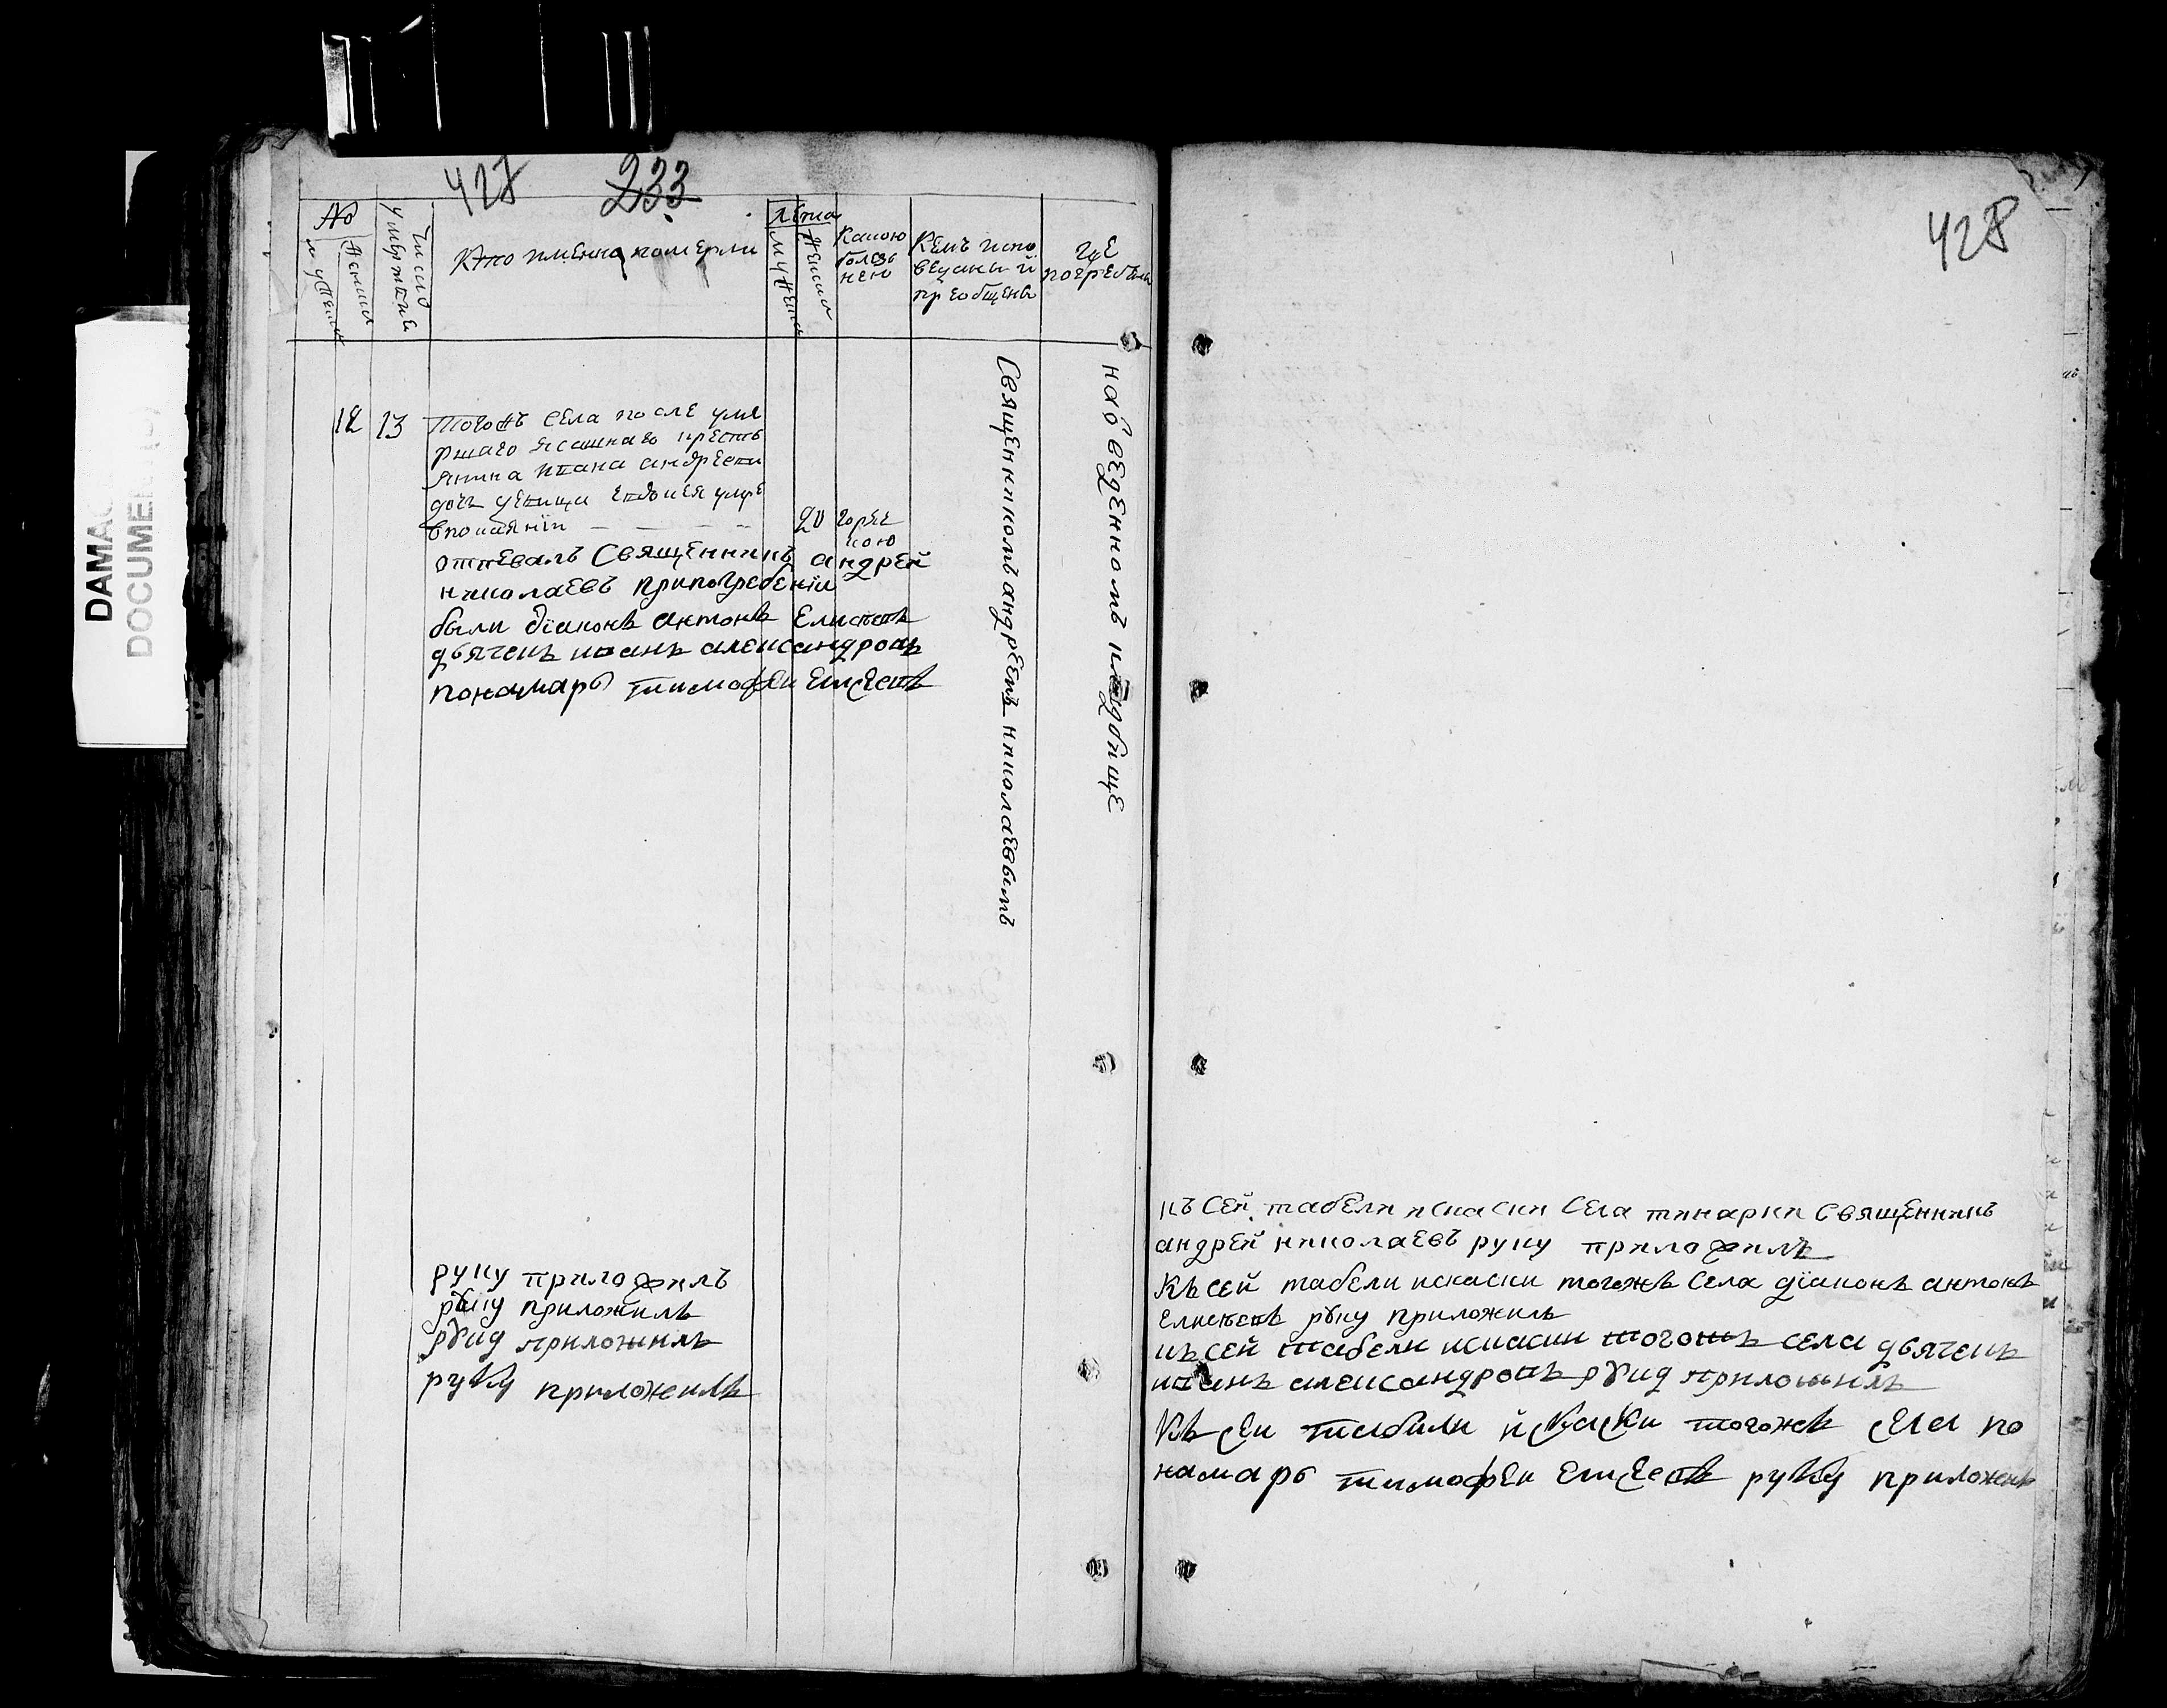 427 233
№
мужеска
женска
Число умертвия
Кто имянно померли
Лета
мужеска
женска
Какою
болезь
нею
Кемъ испо
веданы й
преобщены
где
погребены
12 13 тогожъ села после уме
ршаго ясашнаго кресть
янина ивана андреева
дочь девица евдокея умре
впокаянїи — — — 20 горяч
кою
отпевалъ Священникъ андрей
николаевъ припогребенїи
были дїаконъ антонъ Елисѣевъ
дьячекъ иванъ александровъ
пономарь тимофей Елисеевъ
Священникомъ андреемъ николаевымъ
наъведенномъ кладбище
руку приложилъ
руку приложилъ
руку приложилъ
руку приложилъ
DAMA
DOCUMEN
428
къ Сей табели искаски Села тинарки Священникъ
андрей николаевъ руку приложилъ
Къ сей табели искаски тогожъ села дїаконъ антонъ
Елисѣевъ руку приложилъ
къ сей табели искаски тогожъ села дьячекъ
иванъ александровъ руку приложилъ
Къ сеи табели й скаски тогожъ села по
намарь тимофеи Елисеевъ руку приложилъ